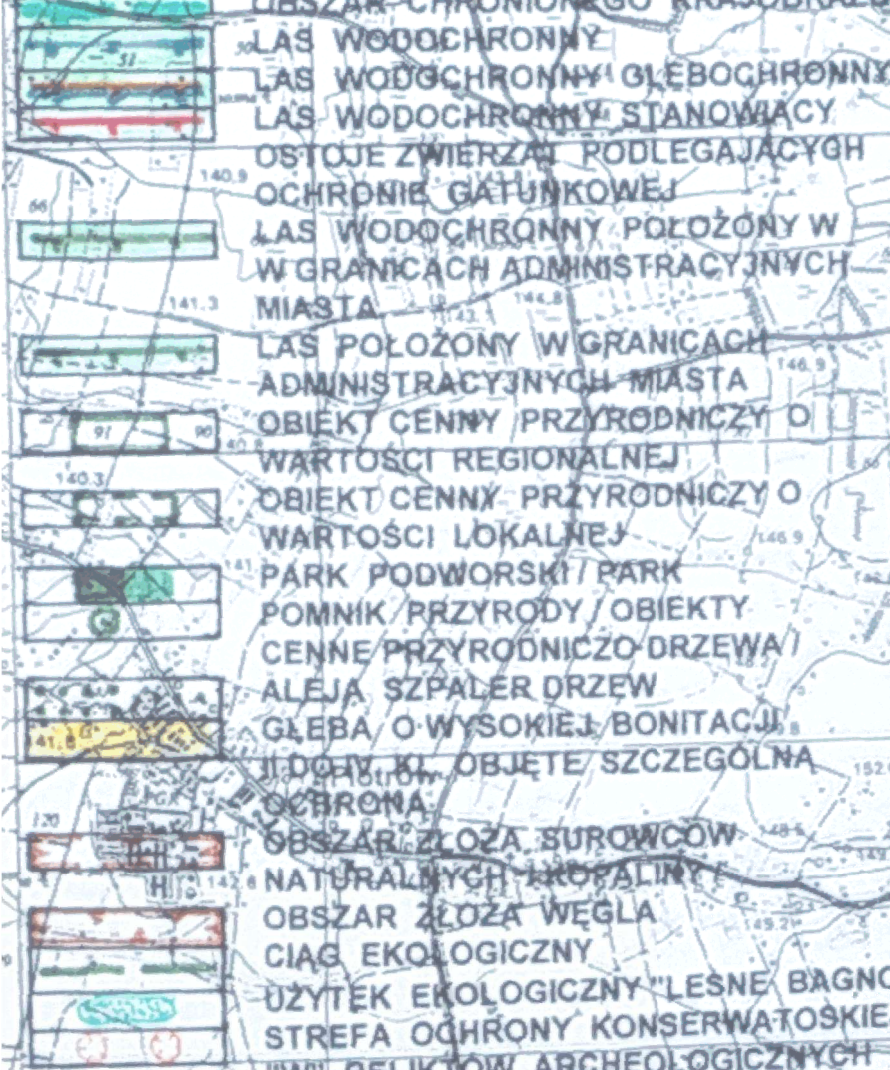 OBSZAR CHRONIONEGO KRAJOBRAZU
LAS WODOCHRONNY
51
LAS WODOCHRONNY GLEBOCHRONNY
LAS WODOCHRONNY STANOWIĄCY
OSTOJE ZWIERZĄT PODLEGAJĄCYCH
140.9
OCHRONIE GATUNKOWEJ
66
LAS WODOCHRONNY POŁOŻONY W
W GRANICACH ADMINISTRACYJNYCH
141.3
144.8
MIASTA
LAS POŁOŻONY W GRANICACH
146.9
ADMINISTRACYJNYCH MIASTA
OBIEKT CENNY PRZYRODNICZY O
91 90
WARTOŚCI REGIONALNEJ
140.3
OBIEKT CENNY PRZYRODNICZY O
WARTOŚCI LOKALNEJ
146.9
PARK PODWORSKI / PARK
POMNIK PRZYRODY / OBIEKTY
CENNE PRZYRODNICZO DRZEWA /
ALEJA SZPALER DRZEW
GLEBA O WYSOKIEJ BONITACJI
141.8
II DO IV KL. OBJĘTE SZCZEGÓLNĄ
OCHRONĄ
120
OBSZAR ZŁOŻA SUROWCÓW
148.5
NATURALNYCH I KOPALINY
H
142.6
OBSZAR ZŁOŻA WĘGLA
145.2
CIĄG EKOLOGICZNY
UŻYTEK EKOLOGICZNY "LEŚNE BAGNO
STREFA OCHRONY KONSERWATOSKIE
"W" RELIKTÓW ARCHEOLOGICZNYCH